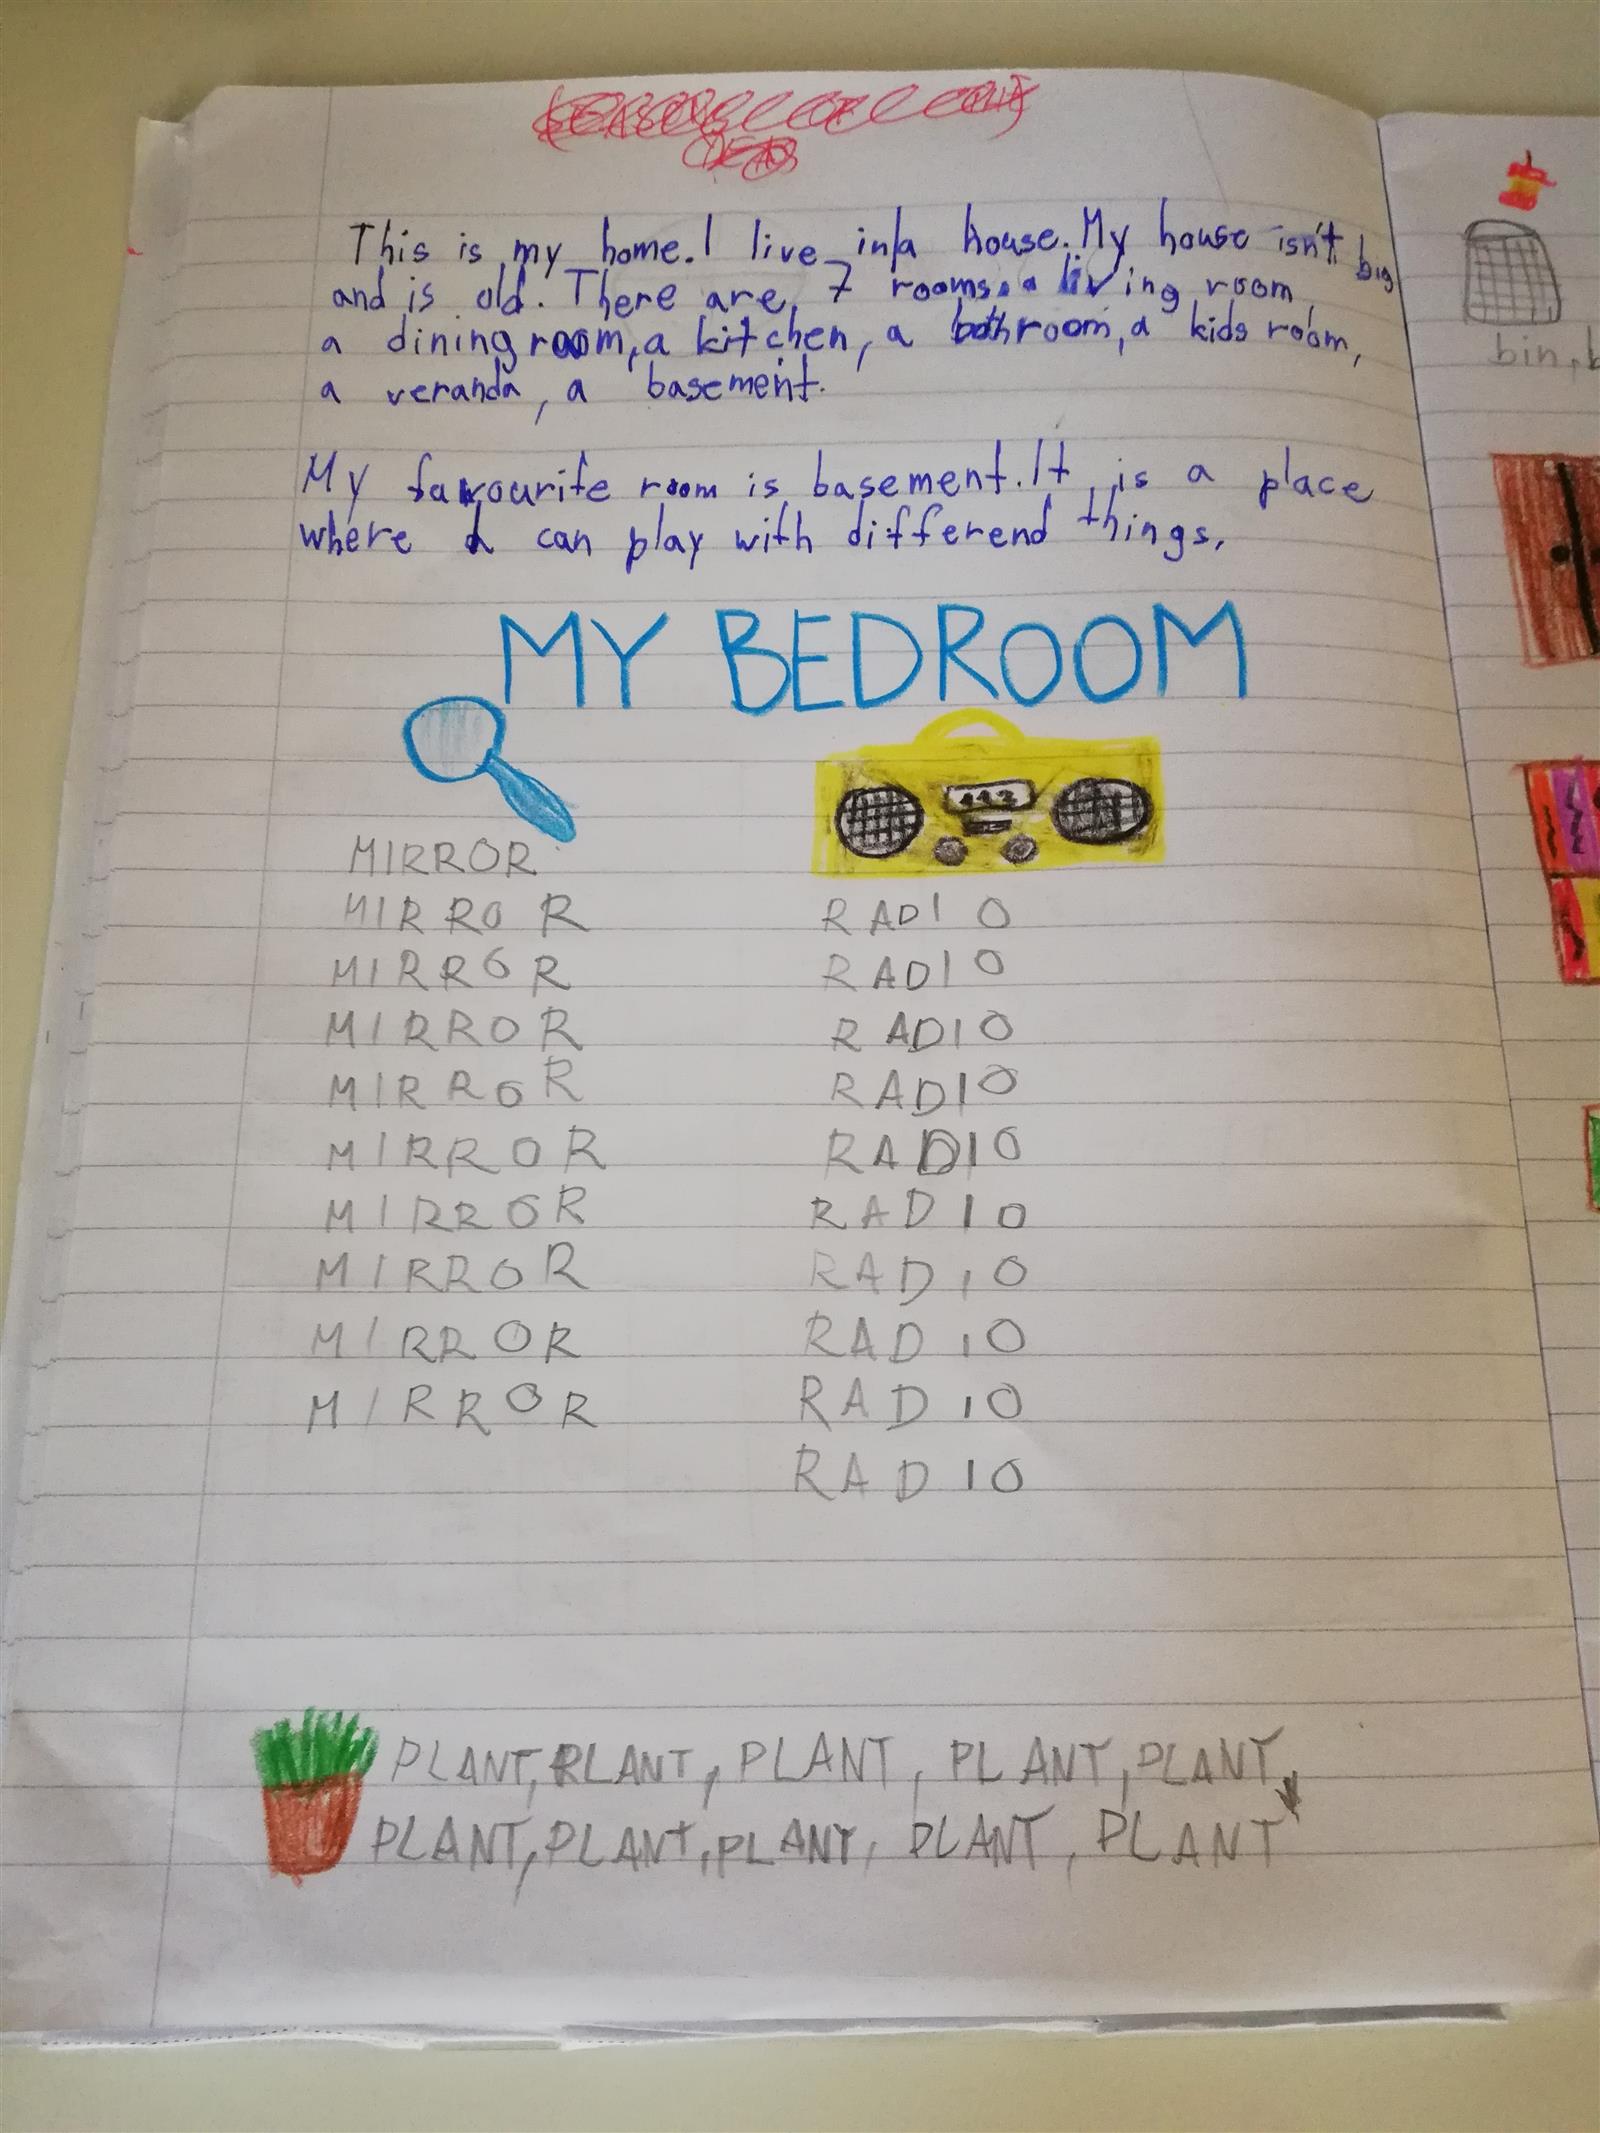 This is my home. I live in a house. My house isn't big
and is old. There are 7 rooms. a living room,
a dining room, a kitchen, a bathroom, a kids room,
a veranda, a basement.
My favourite room is basement. It is a place
where I can play with differend things.
MY BEDROOM
MIRROR
MIRROR RADIO
MIRROR RADIO
MIRROR RADIO
MIRROR RADIO
MIRROR RADIO
MIRROR RADIO
MIRROR RADIO
MIRROR RADIO
MIRROR RADIO
RADIO
PLANT, PLANT, PLANT, PLANT, PLANT,
PLANT, PLANT, PLANT, PLANT, PLANT
bin,